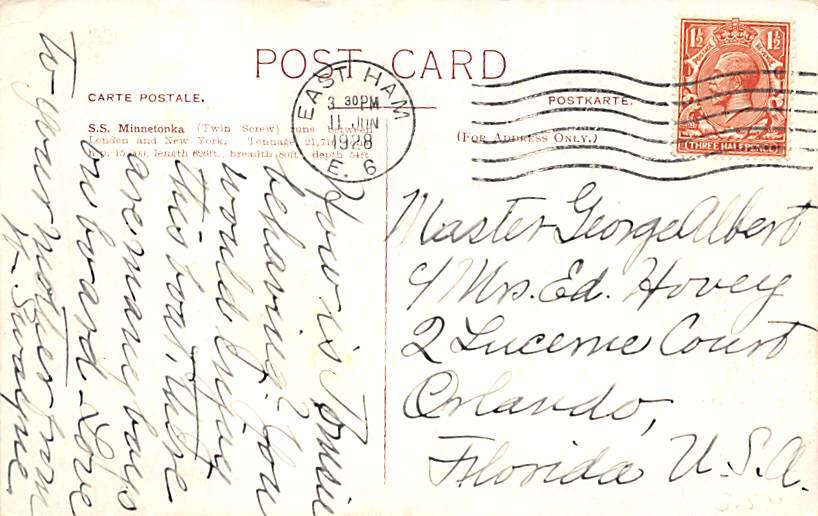 POST CARD
CARTE POSTALE.
POSTKARTE.
S.S. Minnetonka (Twin Screw) runs between
London and New York. Tonnage 21,
h.p. 15, length 626ft. breadth 80ft depth 54ft
(FOR ADDRESS ONLY.)
EAST HAM
3 30PM
11 JUN
1928
E. 6
1½ 1½
POSTAGE REVENUE
THREE HALFPENCE
How is
behaving? You
would enjoy
this boat, there
are many boys
on board - Love
to your mother from
Master George Albert
c/ Mrs. Ed. Hovey
2 Lucerne Court
Orlando,
Florida U.S.A.